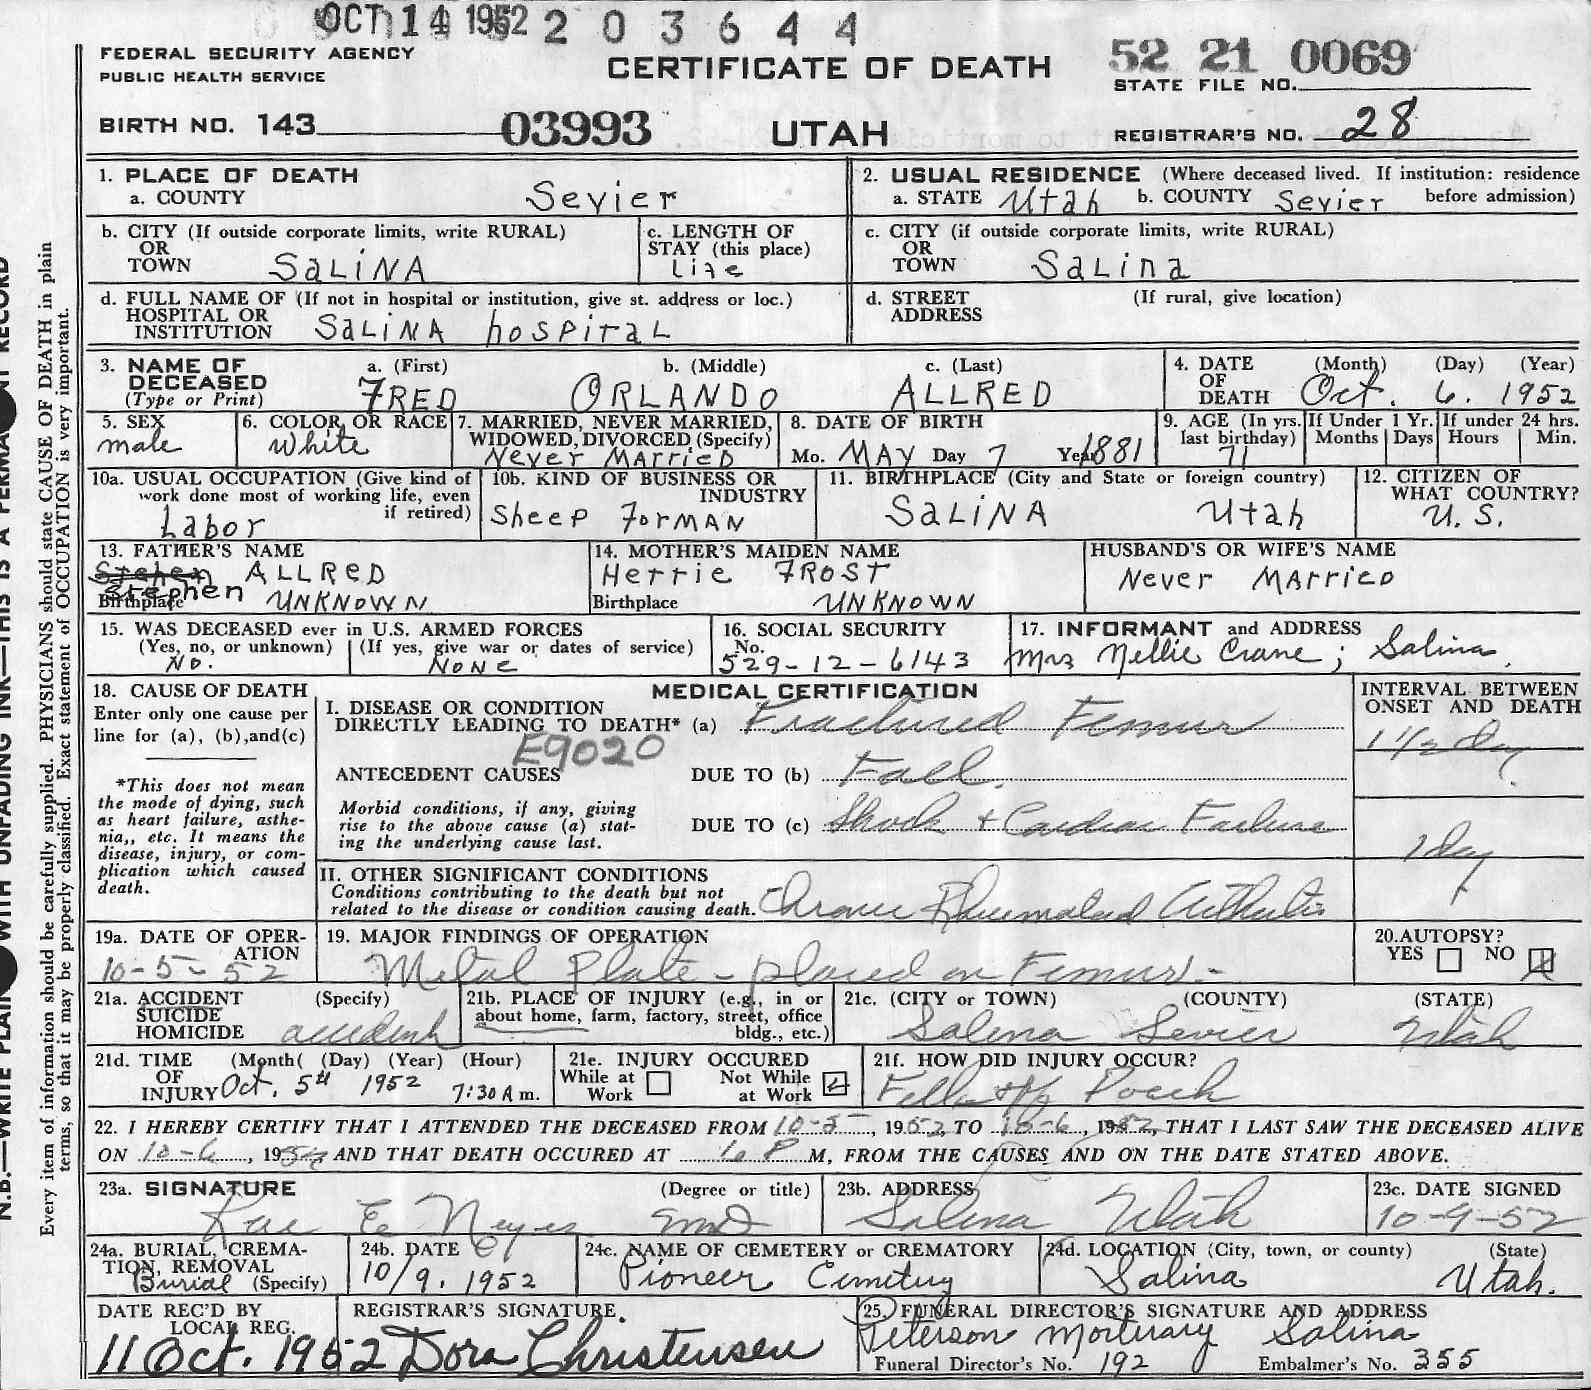 OCT 14 1952 2 0 3 6 4 4
FEDERAL SECURITY AGENCY
PUBLIC HEALTH SERVICE
CERTIFICATE OF DEATH
52 21 0069
STATE FILE NO.
BIRTH NO. 143
03993
UTAH
REGISTRAR'S NO. 28
1. PLACE OF DEATH
a. COUNTY Sevier
2. USUAL RESIDENCE (Where deceased lived. If institution: residence before admission)
a. STATE Utah b. COUNTY Sevier
b. CITY (If outside corporate limits, write RURAL)
OR
TOWN SALINA
c. LENGTH OF
STAY (this place)
Life
c. CITY (if outside corporate limits, write RURAL)
OR
TOWN Salina
d. FULL NAME OF (If not in hospital or institution, give st. address or loc.)
HOSPITAL OR
INSTITUTION SALINA hospital
d. STREET (If rural, give location)
ADDRESS
3. NAME OF DECEASED (Type or Print)
a. (First) b. (Middle) c. (Last)
FRED ORLANDO ALLRED
4. DATE OF DEATH (Month) (Day) (Year)
Oct. 6. 1952
5. SEX
male
6. COLOR OR RACE
White
7. MARRIED, NEVER MARRIED,
WIDOWED, DIVORCED (Specify)
Never MARRIED
8. DATE OF BIRTH
Mo. MAY Day 7 Year 1881
9. AGE (In yrs. last birthday)
71
If Under 1 Yr.
Months Days
If under 24 hrs.
Hours Min.
10a. USUAL OCCUPATION (Give kind of
work done most of working life, even
if retired)
Labor
10b. KIND OF BUSINESS OR
INDUSTRY
Sheep ForMAN
11. BIRTHPLACE (City and State or foreign country)
SALINA Utah
12. CITIZEN OF
WHAT COUNTRY?
U. S.
13. FATHER'S NAME
Stephen ALLRED
Birthplace UNKNOWN
14. MOTHER'S MAIDEN NAME
Hettie FROST
Birthplace UNKNOWN
HUSBAND'S OR WIFE'S NAME
Never MARRIED
15. WAS DECEASED ever in U.S. ARMED FORCES
(Yes, no, or unknown) (If yes, give war or dates of service)
No. None
16. SOCIAL SECURITY
No.
529-12-6143
17. INFORMANT and ADDRESS
Mrs Nellie Crane; Salina.
18. CAUSE OF DEATH
Enter only one cause per
line for (a), (b), and (c)
*This does not mean
the mode of dying, such
as heart failure, asthe-
nia,, etc. It means the
disease, injury, or com-
plication which caused
death.
MEDICAL CERTIFICATION
INTERVAL BETWEEN
ONSET AND DEATH
I. DISEASE OR CONDITION
DIRECTLY LEADING TO DEATH* (a) Fractured Femur
1 1/2 day
E9020
ANTECEDENT CAUSES DUE TO (b) Fall.
Morbid conditions, if any, giving
rise to the above cause (a) stat-
ing the underlying cause last.
DUE TO (c) Shock + Cardiac Failure
1 day
II. OTHER SIGNIFICANT CONDITIONS
Conditions contributing to the death but not
related to the disease or condition causing death. Chronic Rheumatoid Arthritis
19a. DATE OF OPER-
ATION
10-5-52
19. MAJOR FINDINGS OF OPERATION
Metal Plate - placed on Femur. -
20. AUTOPSY?
YES NO
21a. ACCIDENT (Specify)
SUICIDE
HOMICIDE accident
21b. PLACE OF INJURY (e.g., in or
about home, farm, factory, street, office
bldg., etc.)
21c. (CITY or TOWN) (COUNTY) (STATE)
Salina Sevier Utah
21d. TIME (Month( (Day) (Year) (Hour)
OF
INJURY Oct. 5th 1952 7:30 A m.
21e. INJURY OCCURED
While at Work Not While at Work
21f. HOW DID INJURY OCCUR?
Fell off Porch
22. I HEREBY CERTIFY THAT I ATTENDED THE DECEASED FROM 10-5, 1952, TO 10-6, 1952, THAT I LAST SAW THE DECEASED ALIVE
ON 10-6, 1952 AND THAT DEATH OCCURED AT 6 P M, FROM THE CAUSES AND ON THE DATE STATED ABOVE.
23a. SIGNATURE (Degree or title)
Rae E Noyes MD
23b. ADDRESS
Salina Utah
23c. DATE SIGNED
10-9-52
24a. BURIAL, CREMA-
TION, REMOVAL
Burial (Specify)
24b. DATE
10/9. 1952
24c. NAME OF CEMETERY or CREMATORY
Pioneer Cemetery
24d. LOCATION (City, town, or county) (State)
Salina Utah.
DATE REC'D BY
LOCAL REG.
11 Oct. 1952
REGISTRAR'S SIGNATURE.
Dora Christensen
25. FUNERAL DIRECTOR'S SIGNATURE AND ADDRESS
Peterson Mortuary Salina
Funeral Director's No. 192 Embalmer's No. 355
Every item of information should be carefully supplied. PHYSICIANS should state CAUSE OF DEATH in plain
terms, so that it may be properly classified. Exact statement of OCCUPATION is very important.